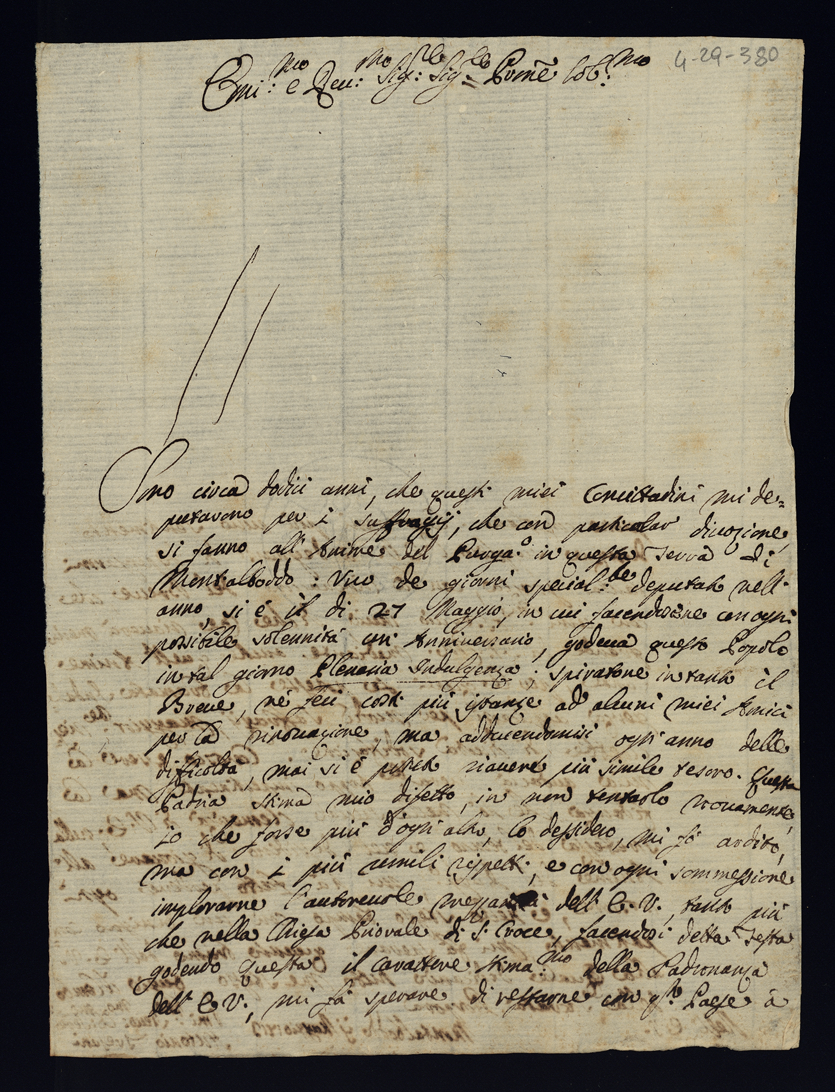 4-29-380
Emi:mo e Reu:mo Sig:re Sig:re Prone Col:mo
Sono circa dodici anni, che questi miei Concittadini mi de=
putarono per i suffragij, che con particolar divozione
si fanno all'Anime del Purga:o in questa Terra di
Montalboddo: Uno de giorni special:te deputati nell'
anno, si è il di 27 Maggio, in cui facendosene con ogni
possibile solennità un Anniversario, godeva questo Popolo
in tal giorno Plenaria Indulgenza; spiratone intanto il
Breve, ne feci con più istanze ad alcuni miei Amici
per la rinovazione, ma adducendomisi ogn'anno delle
difficoltà, mai si è potuto riavere più simile tesoro. Questa
Patria stima mio difetto, in non tentarlo nuovamente,
io che forse più d'ogn'altro, lo dessidero, mi fò ardito,
ma con i più umili rispetti, e con ogni sommessione
implorarne l'autorevole mezzanità dell'E.V., tanto più
che nella Chiesa Priorale di S. Croce, facendosi detta Festa
godendo questa il carattere stima:mo della Padronanza
dell'E.V., mi fà sperare di restarne con q:to Paese à